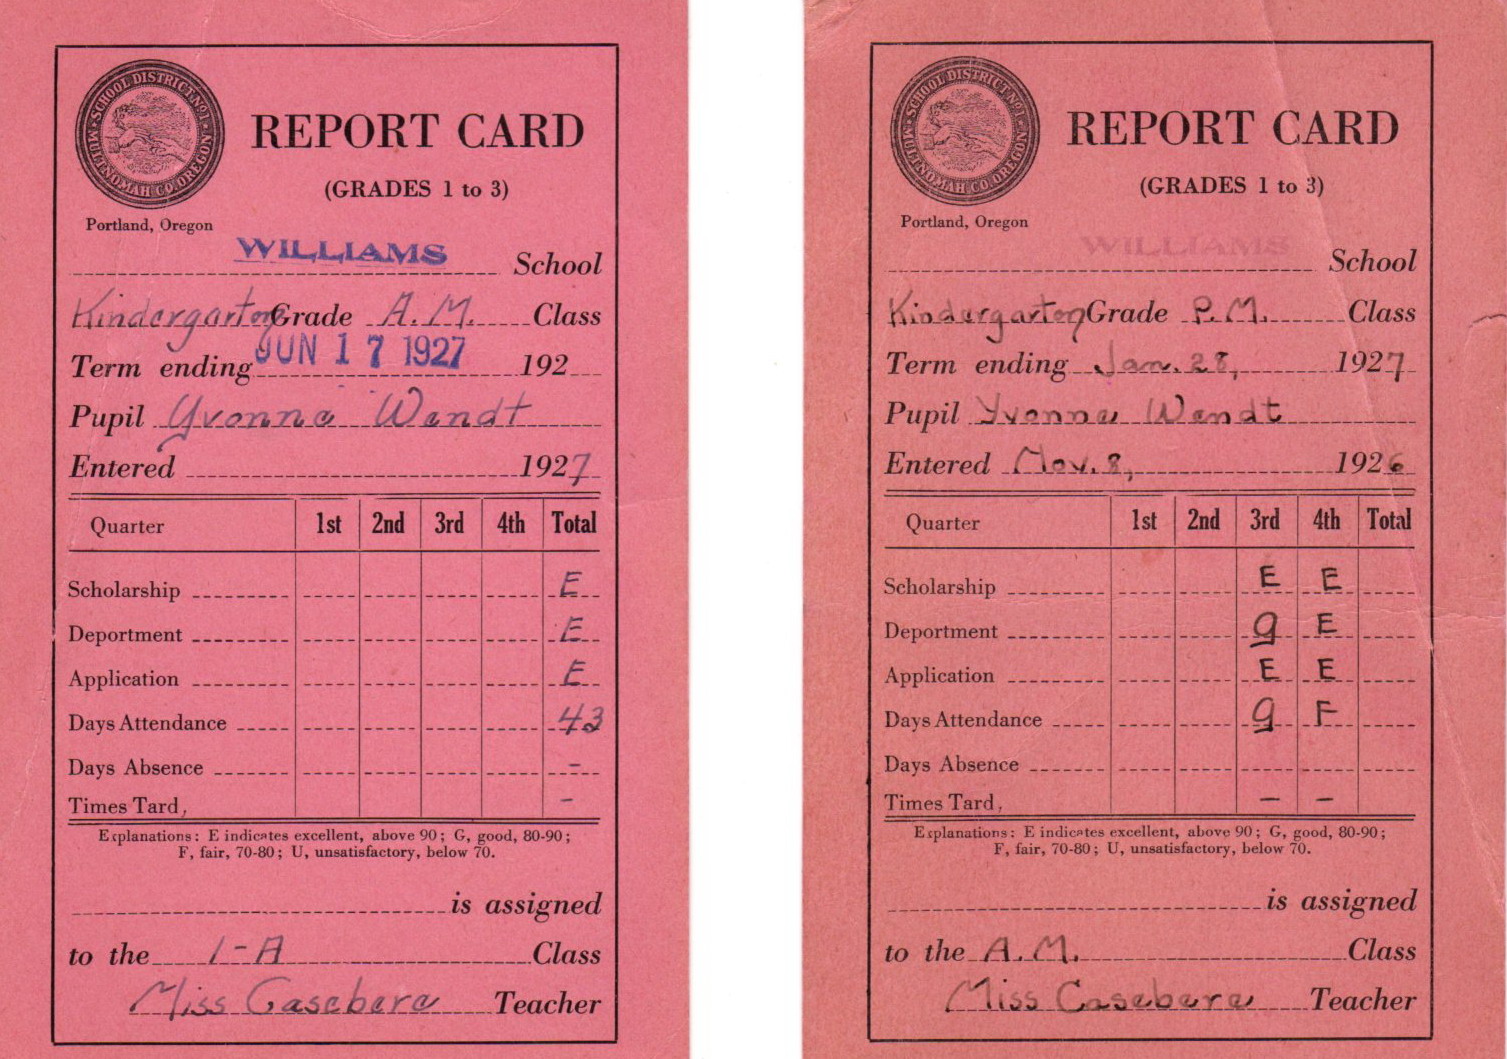 SCHOOL DISTRICT NO. 1 MULTNOMAH CO. OREGON
REPORT CARD
(GRADES 1 to 3)
Portland, Oregon
WILLIAMS School
Kindergarten Grade A.M. Class
Term ending JUN 17 1927 192
Pupil Yvonne Wendt
Entered 1927
Quarter 1st 2nd 3rd 4th Total
Scholarship E
Deportment E
Application E
Days Attendance 43
Days Absence -
Times Tard, -
Explanations: E indicates excellent, above 90; G, good, 80-90;
F, fair, 70-80; U, unsatisfactory, below 70.
is assigned
to the 1-A Class
Miss Casebere Teacher
SCHOOL DISTRICT NO. 1 MULTNOMAH CO. OREGON
REPORT CARD
(GRADES 1 to 3)
Portland, Oregon
WILLIAMS School
Kindergarten Grade P.M. Class
Term ending Jan. 28, 1927
Pupil Yvonne Wendt
Entered Nov. 8, 1926
Quarter 1st 2nd 3rd 4th Total
Scholarship E E
Deportment G E
Application E E
Days Attendance G F
Days Absence
Times Tard, - -
Explanations: E indicates excellent, above 90; G, good, 80-90;
F, fair, 70-80; U, unsatisfactory, below 70.
is assigned
to the A.M. Class
Miss Casebere Teacher